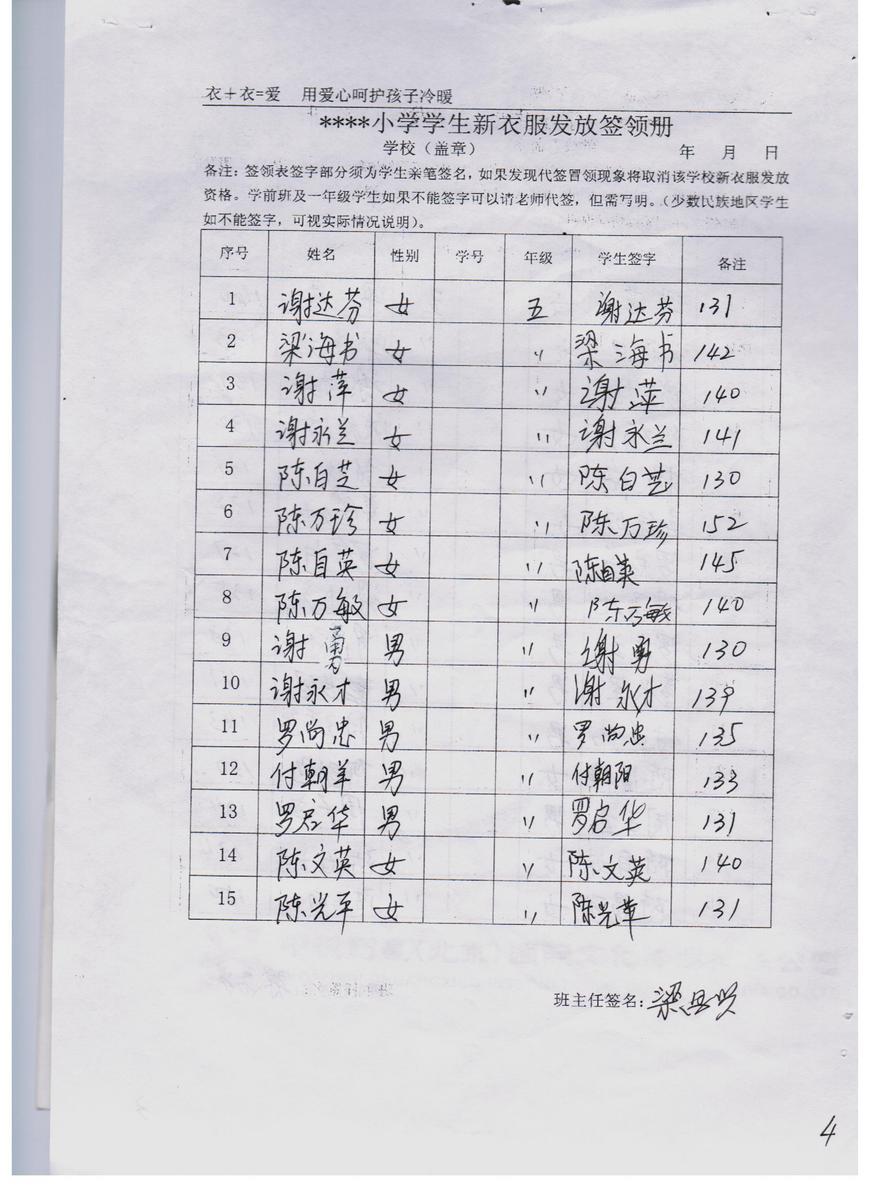 衣+衣=爱 用爱心呵护孩子冷暖
****小学学生新衣服发放签领册
学校（盖章） 年 月 日
备注：签领表签字部分须为学生亲笔签名，如果发现代签冒领现象将取消该学校新衣服发放
资格。学前班及一年级学生如果不能签字可以请老师代签，但需写明。（少数民族地区学生
如不能签字，可视实际情况说明）。
序号 姓名 性别 学号 年级 学生签字 备注
1 谢达芬 女 五 谢达芬 131
2 梁海书 女 〃 梁海书 142
3 谢萍 女 〃 谢萍 140
4 谢永兰 女 〃 谢永兰 141
5 陈自芝 女 〃 陈自芝 130
6 陈万珍 女 〃 陈万珍 152
7 陈自英 女 〃 陈自英 145
8 陈万敏 女 〃 陈万敏 140
9 谢勇 男 〃 谢勇 130
10 谢永才 男 〃 谢永才 139
11 罗尚忠 男 〃 罗尚忠 135
12 付朝羊 男 〃 付朝阳 133
13 罗启华 男 〃 罗启华 131
14 陈文英 女 〃 陈文英 140
15 陈光平 女 〃 陈光苹 131
班主任签名：梁
4